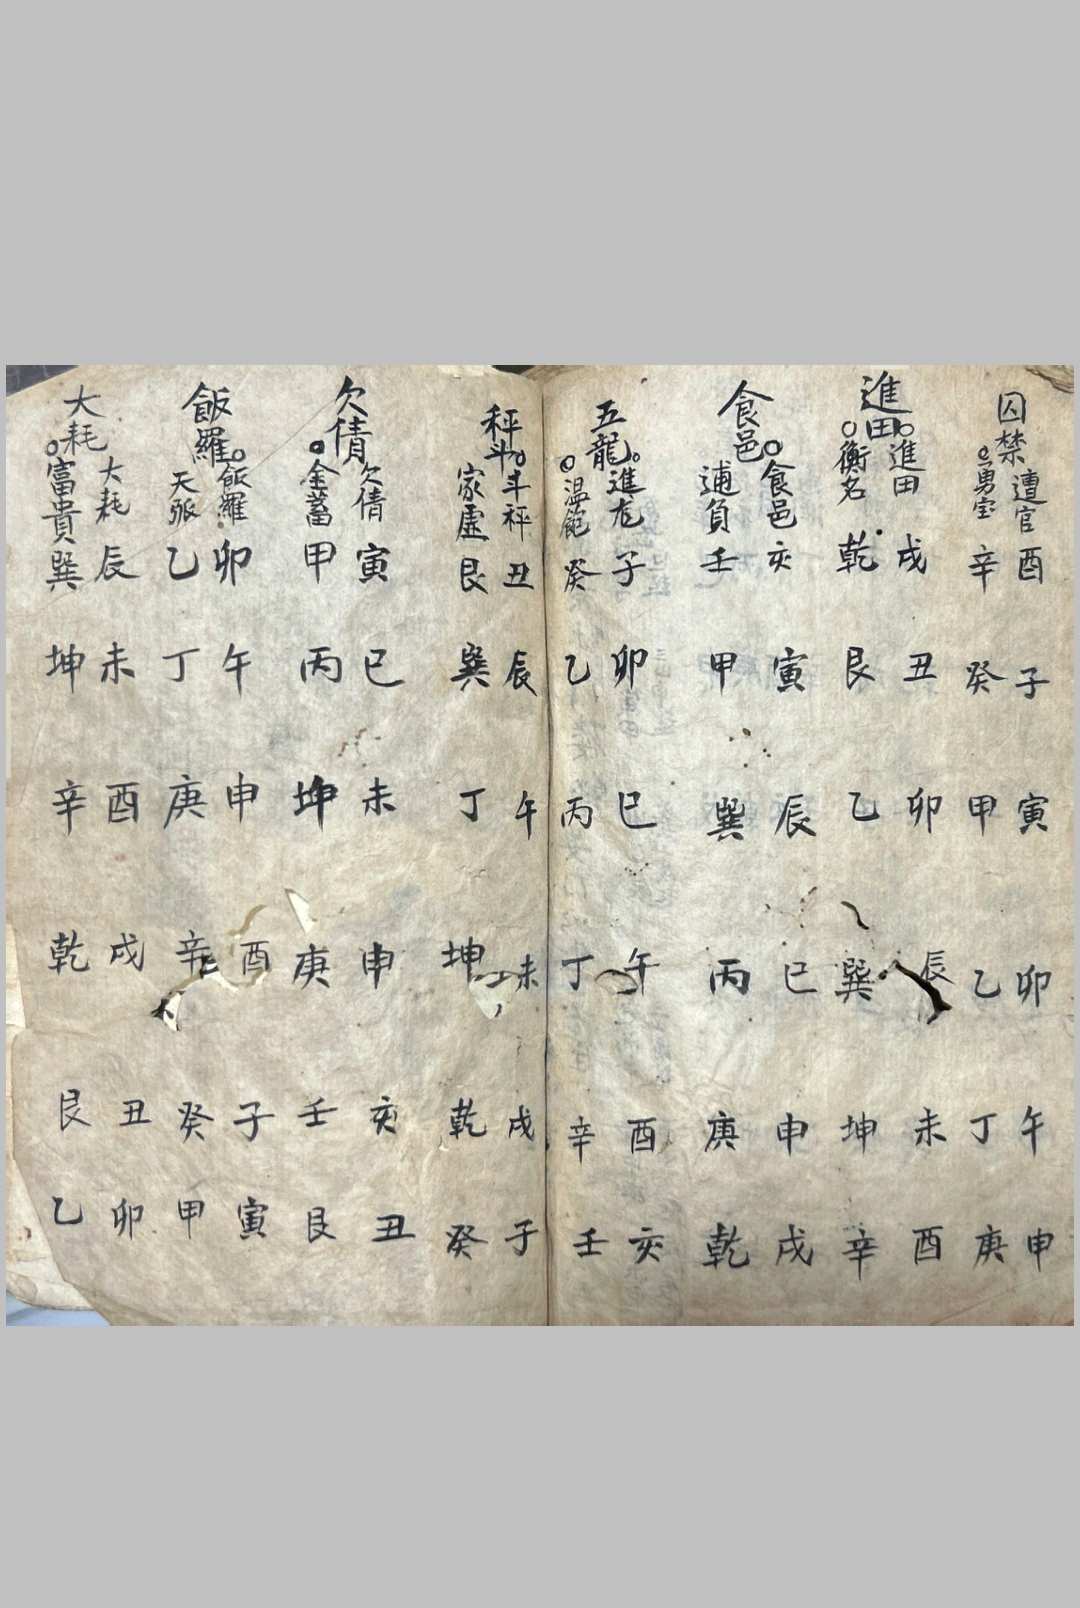 囚禁
遭官 酉 子 寅 卯 午 申
勇宝 辛 癸 甲 乙 丁 庚
進田
進田 戌 丑 卯 辰 未 酉
衡名 乾 艮 乙 巽 坤 辛
食邑
食邑 亥 寅 辰 巳 申 戌
逋負 壬 甲 巽 丙 庚 乾
五龍
進龙 子 卯 巳 午 酉 亥
温飽 癸 乙 丙 丁 辛 壬
秤斗
斗秤 丑 辰 午 未 戌 子
家虛 艮 巽 丁 坤 乾 癸
欠倩
欠倩 寅 巳 未 申 亥 丑
金蓄 甲 丙 坤 庚 壬 艮
飯羅
飯羅 卯 午 申 酉 子 寅
天 乙 丁 庚 辛 癸 甲
大耗
大耗 辰 未 酉 戌 丑 卯
富貴 巽 坤 辛 乾 艮 乙